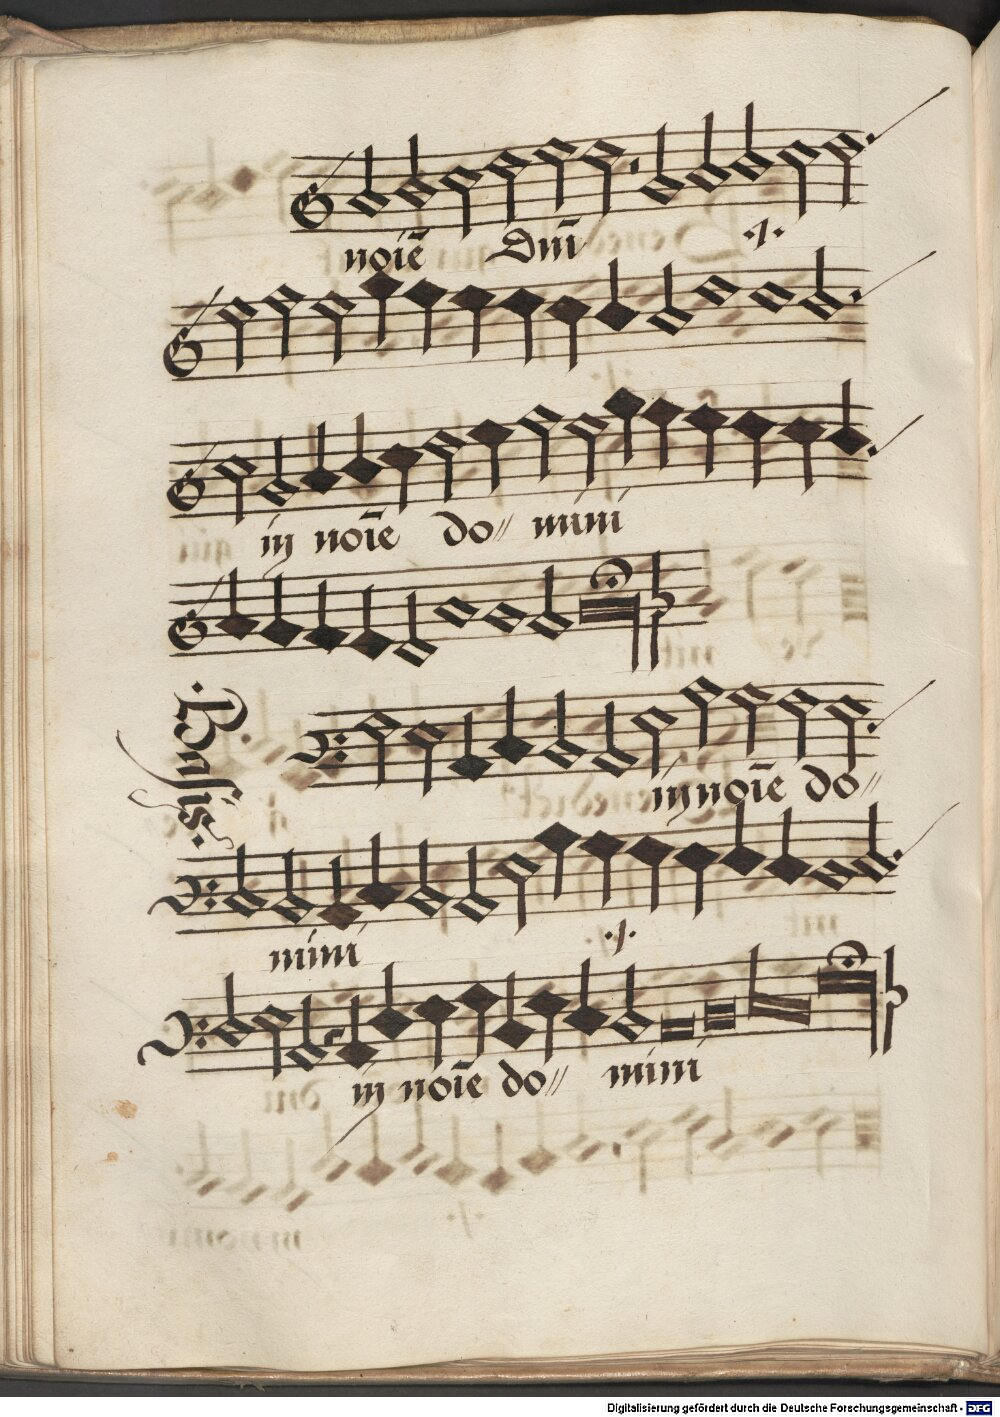 noiē Dnī ./.
in noiē do// mini
Bassis.
in noiē do//
mini ./.
in noiē do// mini
Digitalisierung gefördert durch die Deutsche Forschungsgemeinschaft - DFG